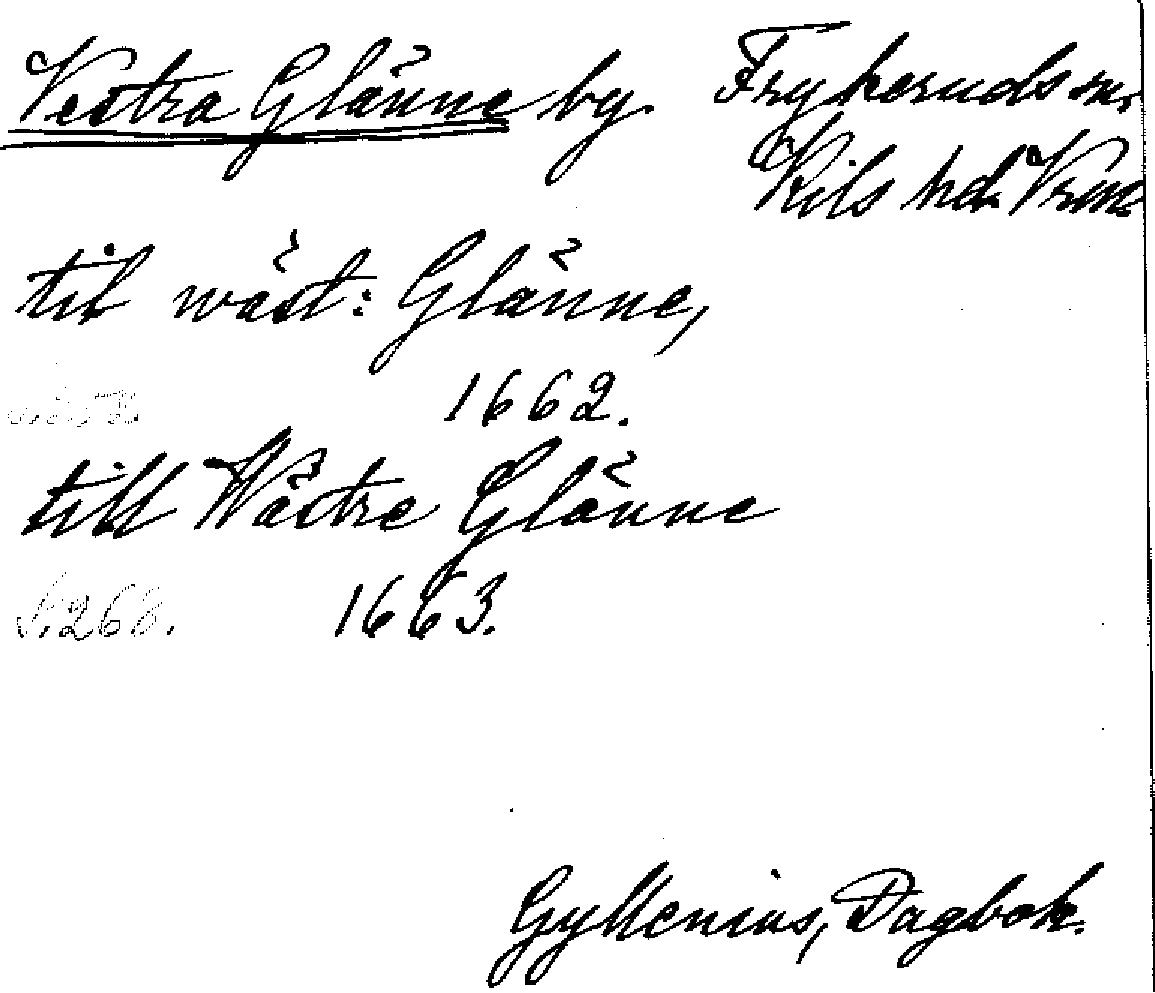 Vestra Glänne by. Frykeruds sn.
Kils hd. Vrm.
til wäst: Glänne,
1662.
till Wästre Glänne
s. 268. 1663.
Gyllenius, Dagbok.